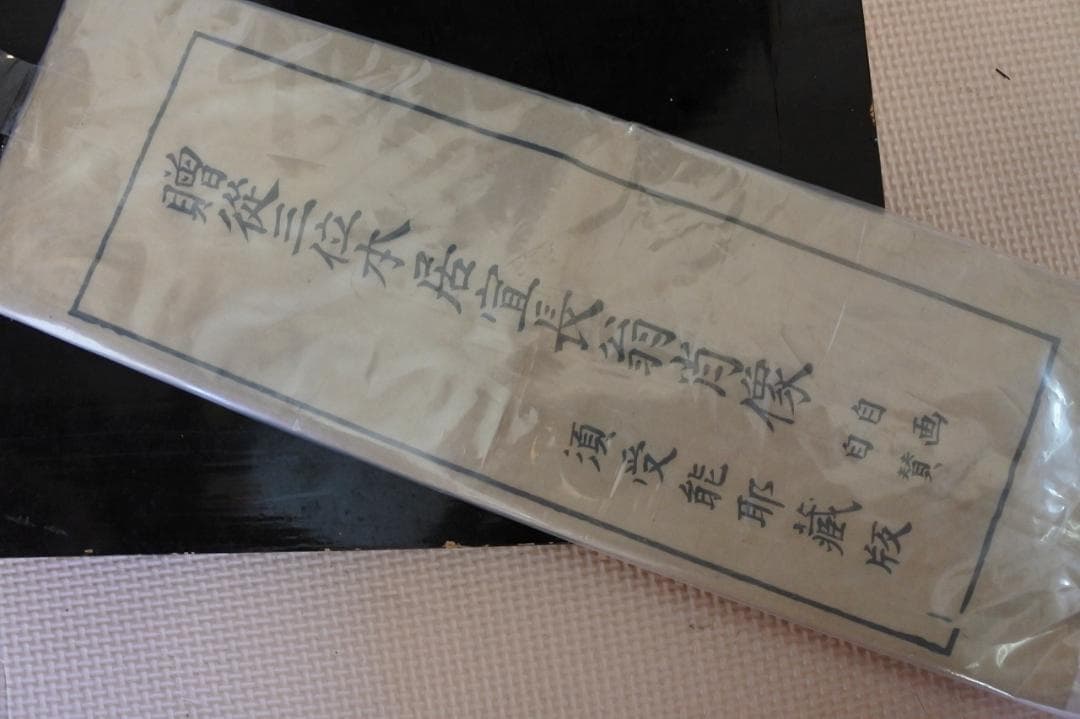 贈從三位本居宣長翁肖像
自画
自賛
須受能耶藏版